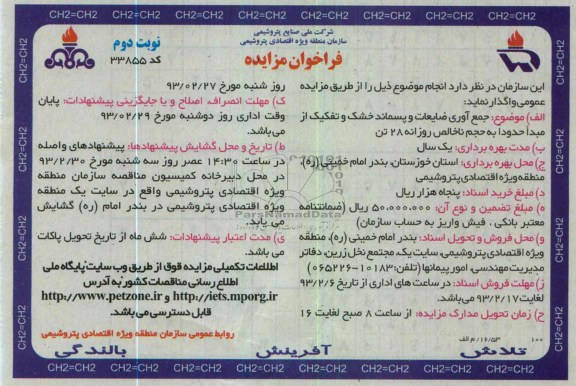 CH2=CH2 CH2=CH2 CH2=CH2 CH2=CH2 CH2=CH2 CH2=CH2 CH2=CH2 CH2=CH2
شرکت ملی صنایع پتروشیمی
سازمان منطقه ویژه اقتصادی پتروشیمی
فراخوان مزایده
نوبت دوم
کد ۳۳۸۵۵
این سازمان در نظر دارد انجام موضوع ذیل را از طریق مزایده
عمومی واگذار نماید:
الف) موضوع: جمع آوری ضایعات و پسماند خشک و تفکیک از
مبدأ حدودا به حجم ناخالص روزانه ۲۸ تن
ب) مدت بهره برداری: یک سال
ج) محل بهره برداری: استان خوزستان، بندر امام خمینی (ره)
منطقه ویژه اقتصادی پتروشیمی
د) مبلغ خرید اسناد: پنجاه هزار ریال
ه) مبلغ تضمین و نوع آن: ۵۰.۰۰۰.۰۰۰ ریال (ضمانتنامه
معتبر بانکی ، فیش واریز به حساب سازمان)
و) محل فروش و تحویل اسناد: بندر امام خمینی (ره)، منطقه
ویژه اقتصادی پتروشیمی، سایت یک، مجتمع نخل زرین، دفاتر
مدیریت مهندسی، امور پیمانها (تلفن: ۱۰۱۸۳-۰۶۵۲۲۶)
ز) مهلت فروش اسناد: در ساعت های اداری از تاریخ ۹۳/۲/۶
لغایت ۹۳/۲/۱۷ می‌باشد.
ح) زمان تحویل مدارک مزایده: از ساعت ۸ صبح لغایت ۱۶
روز شنبه مورخ ۹۳/۰۲/۲۷
ک) مهلت انصراف، اصلاح و یا جایگزینی پیشنهادات: پایان
وقت اداری روز دوشنبه مورخ ۹۳/۰۲/۲۹
می‌باشد.
ط) تاریخ و محل گشایش پیشنهادها: پیشنهادهای واصله
در ساعت ۱۴:۳۰ عصر روز سه شنبه مورخ ۹۳/۲/۳۰
در محل دبیرخانه کمیسیون مناقصه سازمان منطقه
ویژه اقتصادی پتروشیمی واقع در سایت یک منطقه
ویژه اقتصادی پتروشیمی در بندر امام (ره) گشایش
می یابد.
ی) مدت اعتبار پیشنهادات: شش ماه از تاریخ تحویل پاکات
می باشد.
اطلاعات تکمیلی مزایده فوق از طریق وب سایت پایگاه ملی
اطلاع رسانی مناقصات کشور به آدرس
http://iets.mporg.ir و http://www.petzone.ir
قابل دسترسی می باشد.
روابط عمومی سازمان منطقه ویژه اقتصادی پتروشیمی
ParsNamadData
۱۰۰
۱۶/۵۳/ م الف
تلاش آفرینش بالندگی
CH2=CH2 CH2=CH2 CH2=CH2 CH2=CH2 CH2=CH2 CH2=CH2 CH2=CH2 CH2=CH2